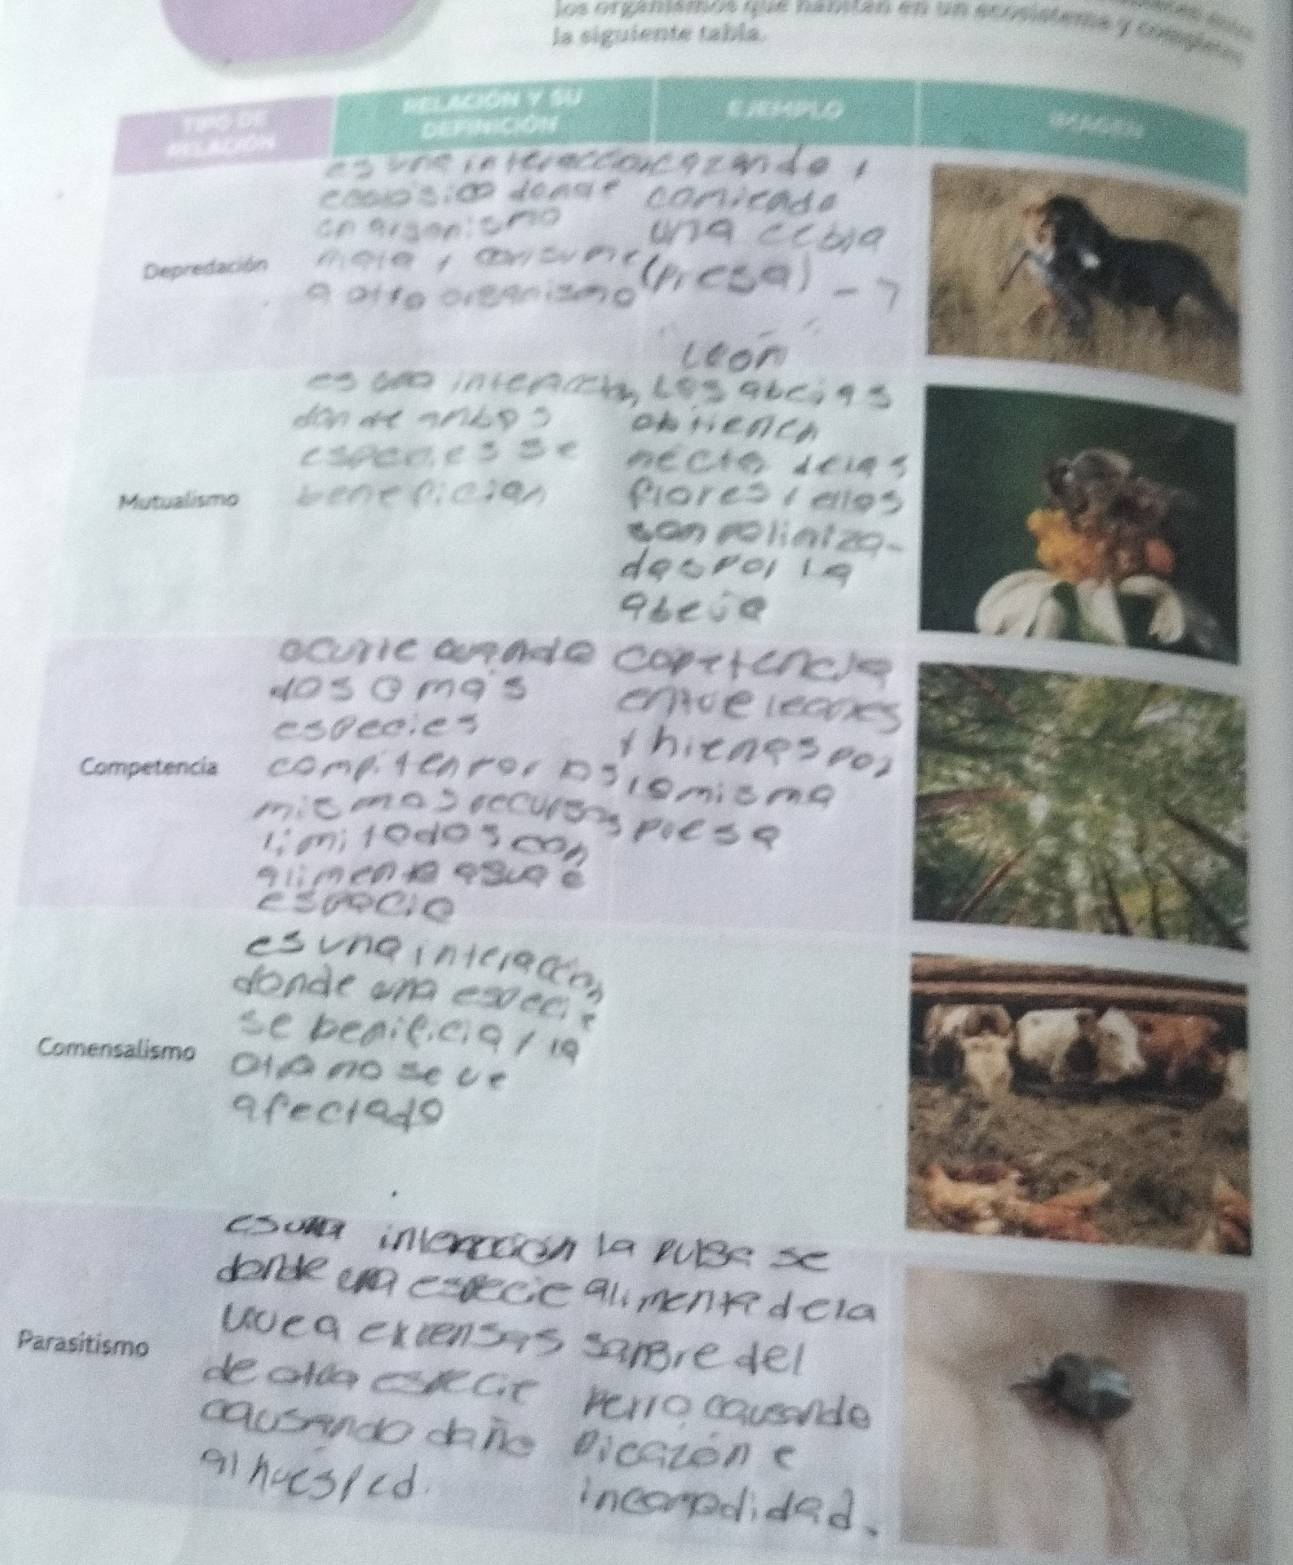 los organismos que habitan en un ecosistema y
la siguiente tabla.
TIPO DE RELACIÓN
RELACIÓN Y SU DEFINICIÓN
EJEMPLO
IMAGEN
Depredación
es una interaccion
donde
un organismo
mata y consume
a otro organismo
cazando y
comieado
una cebia
(presa) -7
león
Mutualismo
es una
donde ambos
especies se
benefician
Las abejas
obtienen
necta delas
flores y ellos
son poliniza-
das por la
abeja
Competencia
ocurre cuando
dos o mas
especies
compiten por los
mismos recursos
limitados con
alimento
especie
copetencia
entre leones
y hienas por
la misma
presa
Comensalismo
es una interaccion
donde una especie
se benificia y la
otra no se ve
afectado
Parasitismo
es una interaccion
donde una especie
vive a expensas
de otra especie
causando daño
al huesped.
la pulga se
alimenta de la
sangre del
perro causando
picazón e
incomodidad.